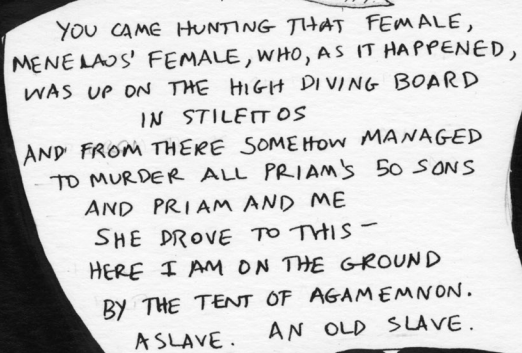 YOU CAME HUNTING THAT FEMALE,
MENELAOS' FEMALE, WHO, AS IT HAPPENED,
WAS UP ON THE HIGH DIVING BOARD
IN STILETTOS
AND FROM THERE SOMEHOW MANAGED
TO MURDER ALL PRIAM'S 50 SONS
AND PRIAM AND ME
SHE DROVE TO THIS —
HERE I AM ON THE GROUND
BY THE TENT OF AGAMEMNON.
A SLAVE. AN OLD SLAVE.